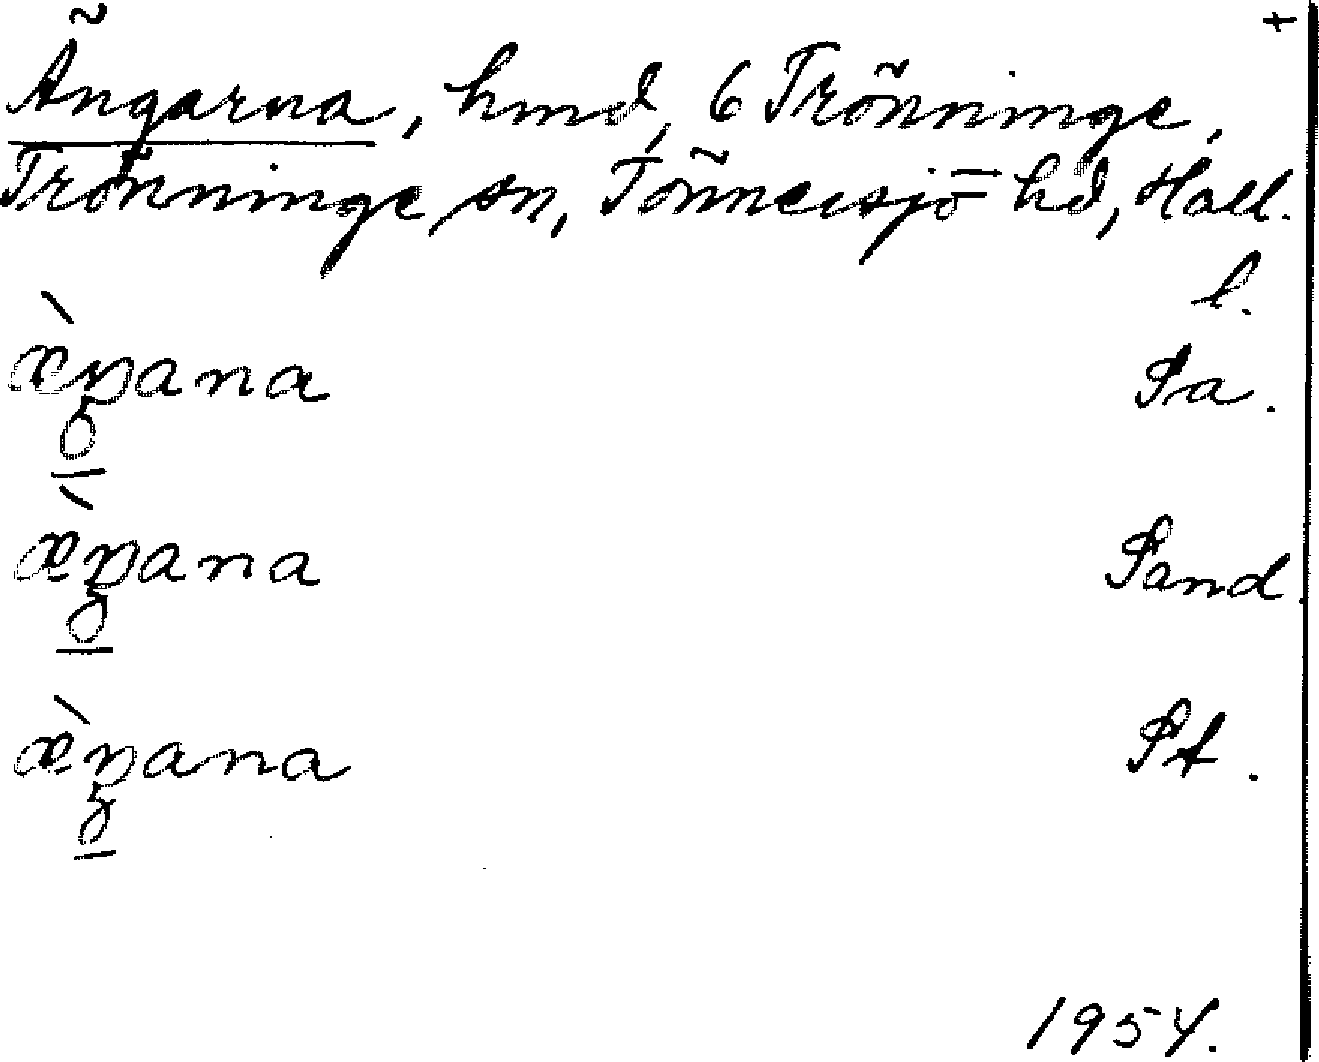 +
Ängarna, hmd, 6 Trönninge,
Trönninge sn, Tönnersjö hd, Hall.
l.
æ̀ŋana Pa.
æ̀ŋana Pand.
æ̀ŋana Pt.
1954.